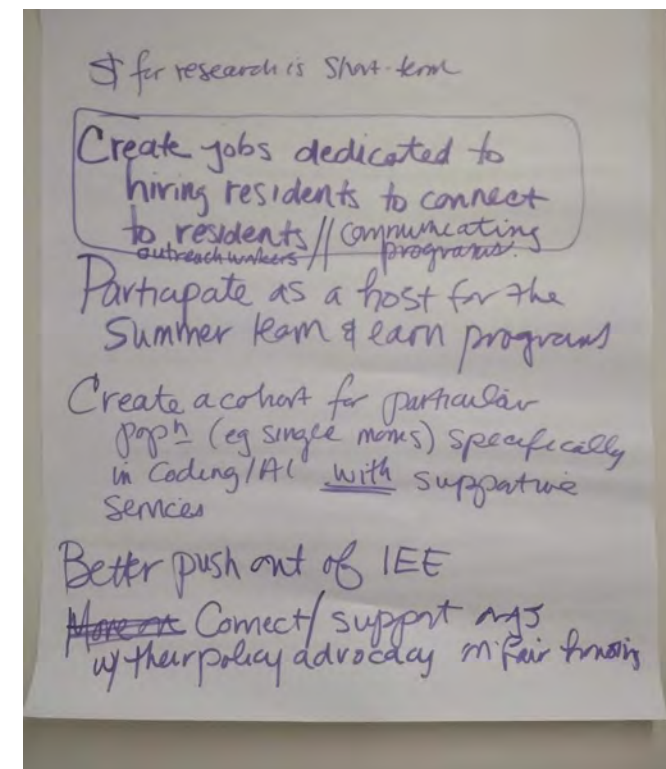 $ for research is Short-term
Create jobs dedicated to
hiring residents to connect
to residents // communicating
outreach workers programs.
Participate as a host for the
Summer learn & earn programs
Create a cohort for particular
popn (eg single moms) specifically
in Coding/AI with supportive
services
Better push out of IEE
Connect/support orgs
w/ their policy advocacy in fair housing